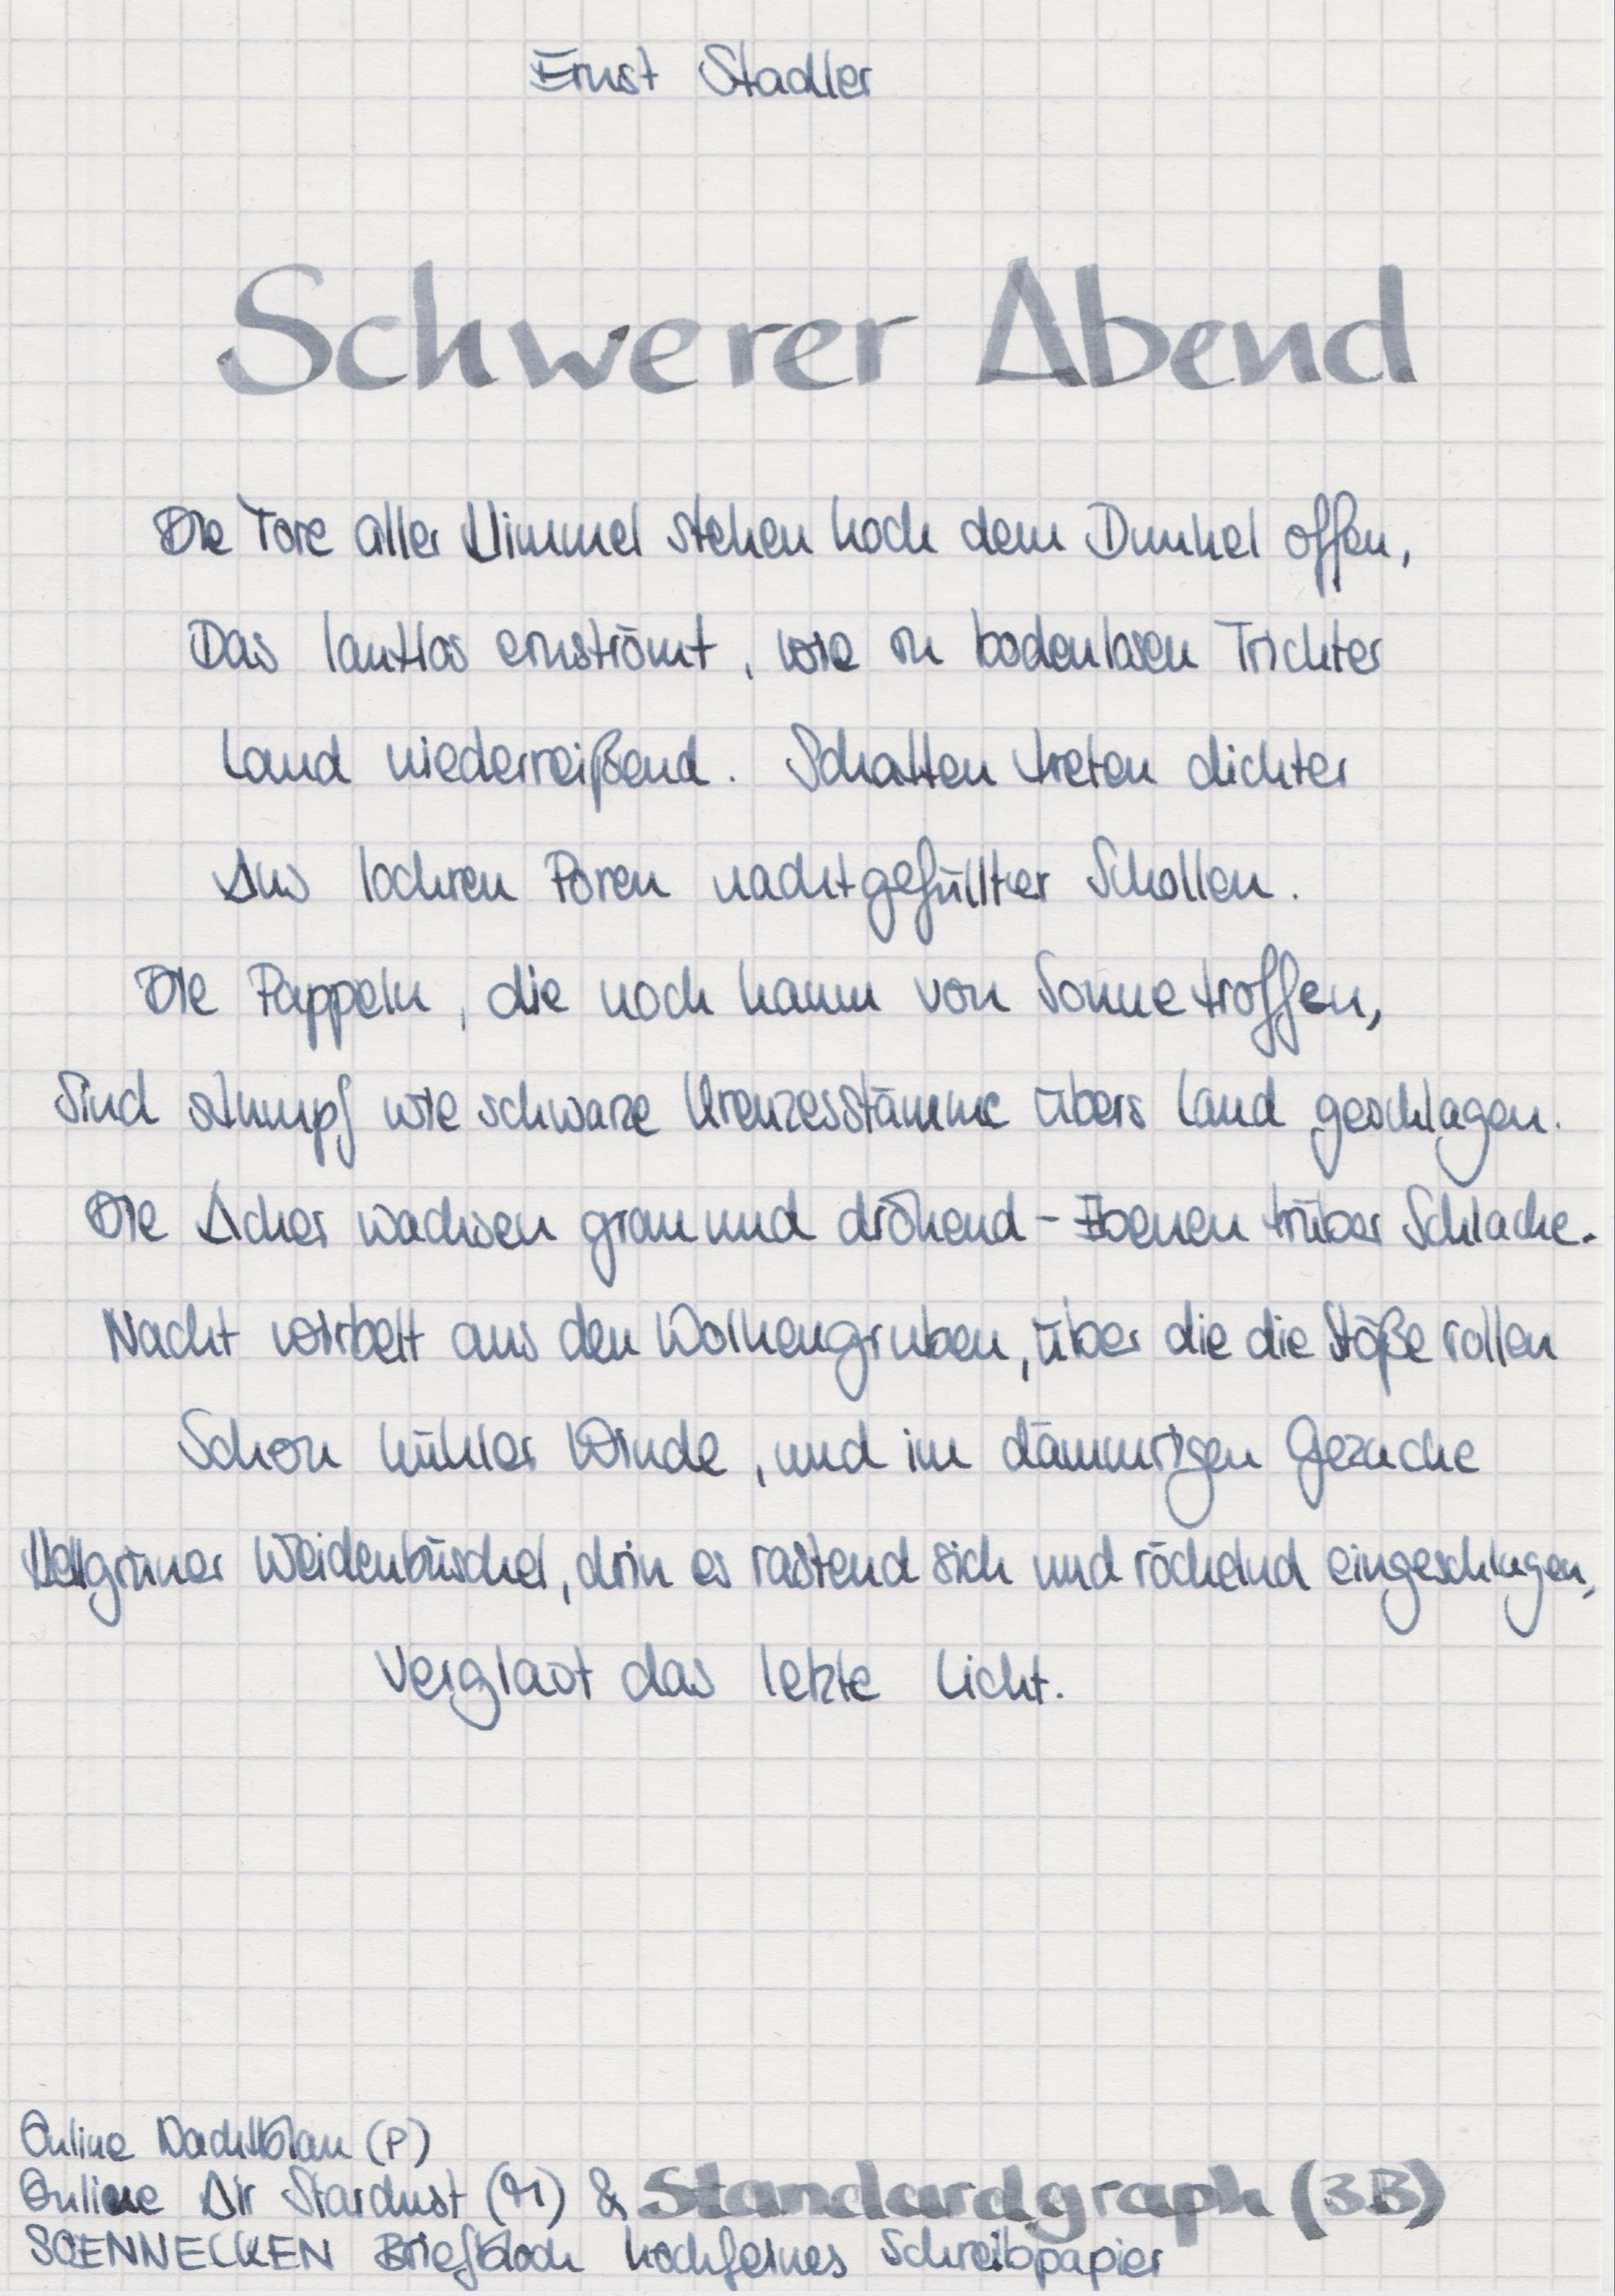 Ernst Stadler
Schwerer Abend
Die Tore aller Himmel stehen hoch dem Dunkel offen,
Das lautlos einströmt, wie in bodenlosen Trichter
Land niederreißend. Schatten treten dichter
Aus lockren Poren nachtgefüllter Schollen.
Die Pappeln, die noch kaum von Sonne troffen,
Sind stumpf wie schwarze Kreuzesstämme übers Land geschlagen.
Die Äcker wachsen grau und dröhend - Ebenen trüber Schlacke.
Nacht wirbelt aus den Wolkengruben, über die die Stöße rollen
Schon kühler Winde, und im dämmrigen Gezacke
Hellgrüner Weidenbüschel, drin es rastend sich und röchelnd eingeschlagen,
Verglast das letzte Licht.
Online Nachtblau (P)
Online Air Stardust (M) & Standardgraph (3B)
SOENNECKEN Briefblock hochfeines Schreibpapier